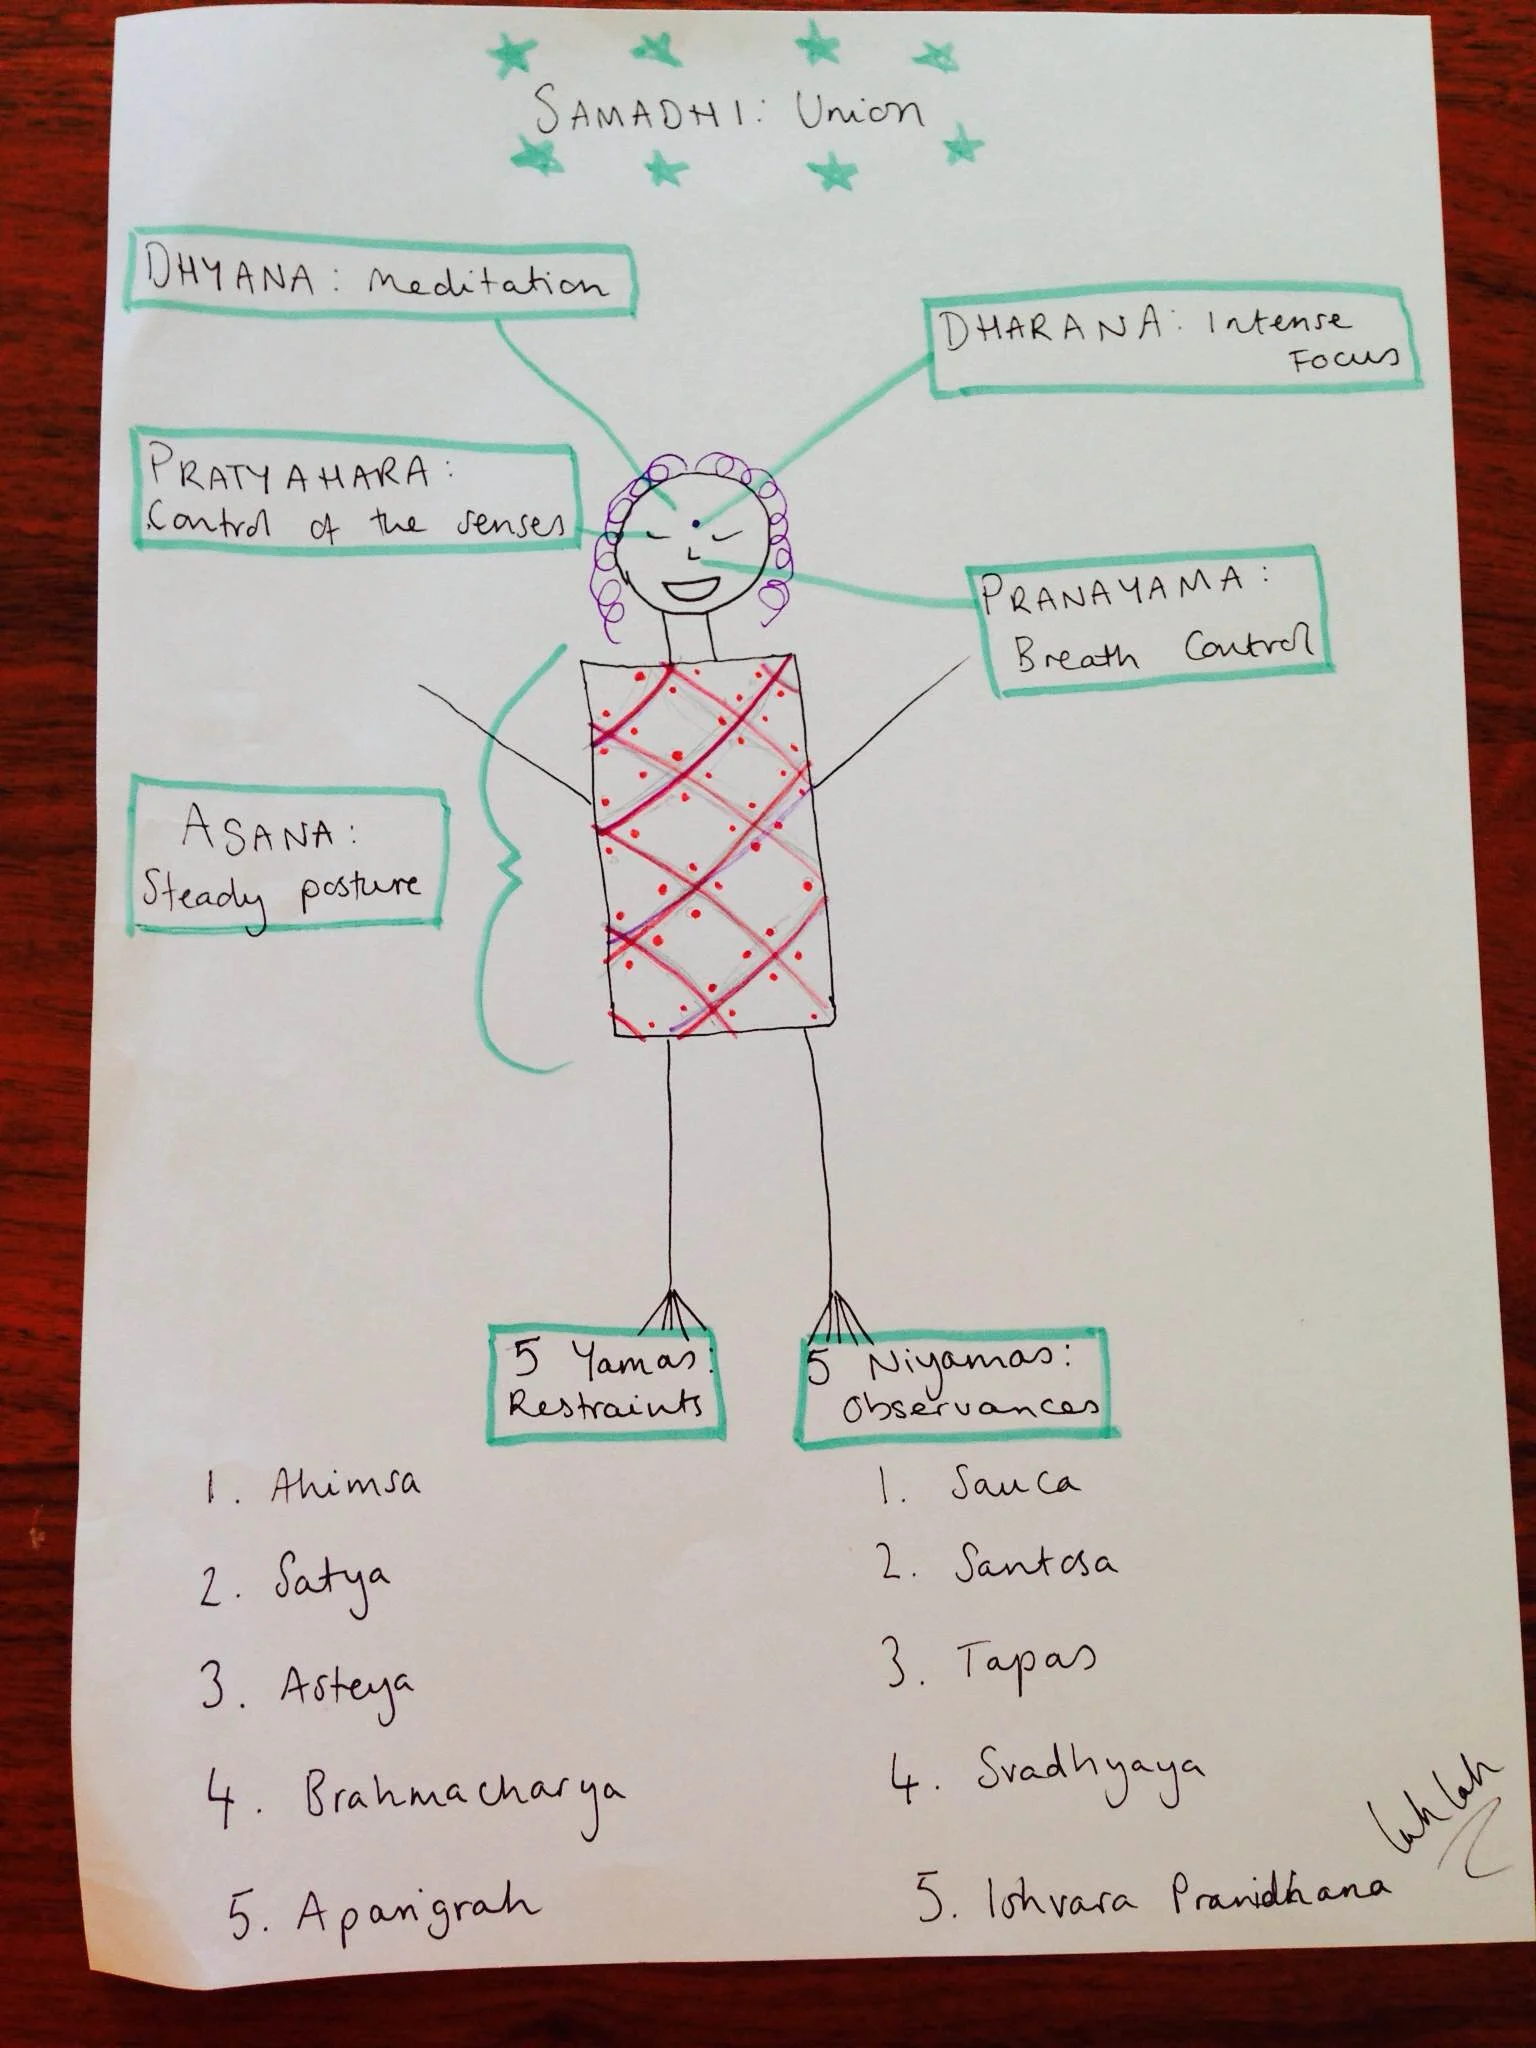 SAMADHI: Union
DHYANA: Meditation
DHARANA: Intense
Focus
PRATYAHARA:
Control of the senses
PRANAYAMA:
Breath Control
ASANA:
Steady posture
5 Yamas:
Restraints
1. Ahimsa
2. Satya
3. Asteya
4. Brahmacharya
5. Aparigrah
5 Niyamas:
Observances
1. Sauca
2. Santosa
3. Tapas
4. Svadhyaya
5. Ishvara Pranidhana